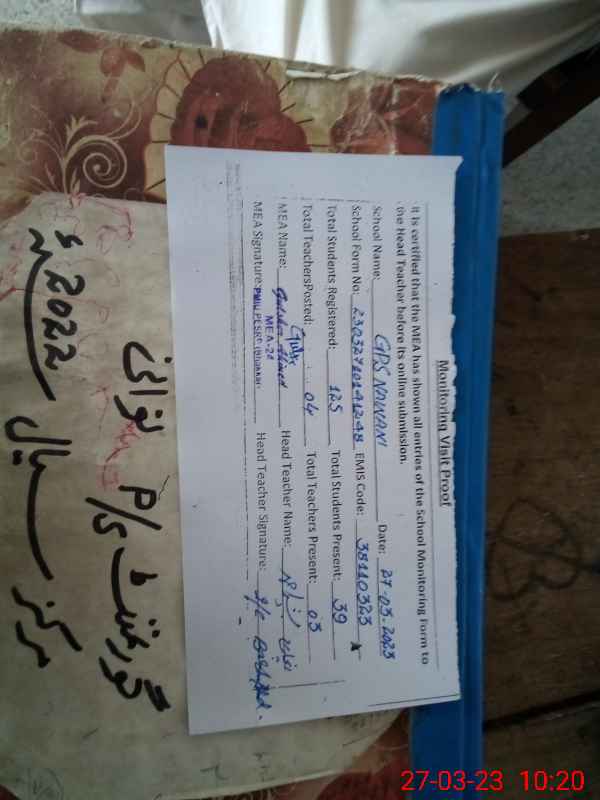 Monitoring Visit Proof
It is certified that the MEA has shown all entries of the School Monitoring Form to
the Head Teacher before its online submission.
School Name: GPS NAWANI Date: 27-03-2023
School Form No: EMIS Code: 38110323
Total Students Registered: 125 Total Students Present: 39
Total TeachersPosted: 04 Total Teachers Present: 03
MEA Name: Head Teacher Name:
MEA-24
MEA Signature: Head Teacher Signature:
گورنمنٹ P/S نوانی
مرکز سیال 2022ء
27-03-23 10:20